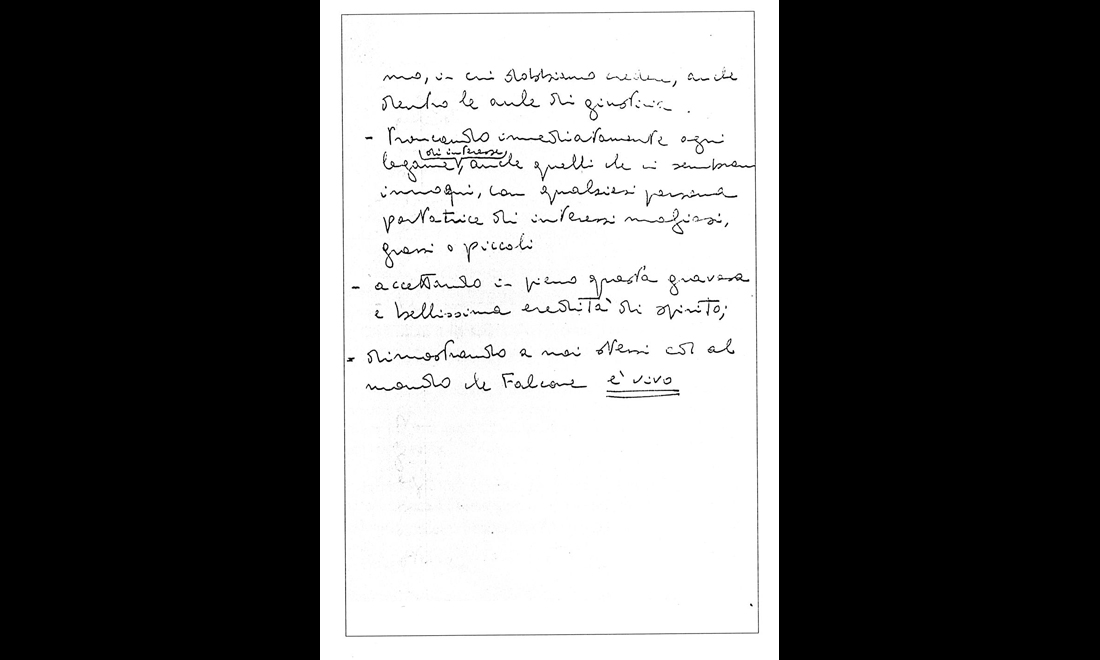 mo, in cui dobbiamo credere, anche
dentro le aule di giustizia.
- Troncando immediatamente ogni
di interesse
legame, anche quelli che ci sembran
innoqui, con qualsiasi persona
portatrice di interessi mafiosi,
grossi o piccoli
- accettando in pieno questa gravosa
e bellissima eredità di spirito;
- dimostrando a noi stessi ed al
mondo che Falcone è vivo